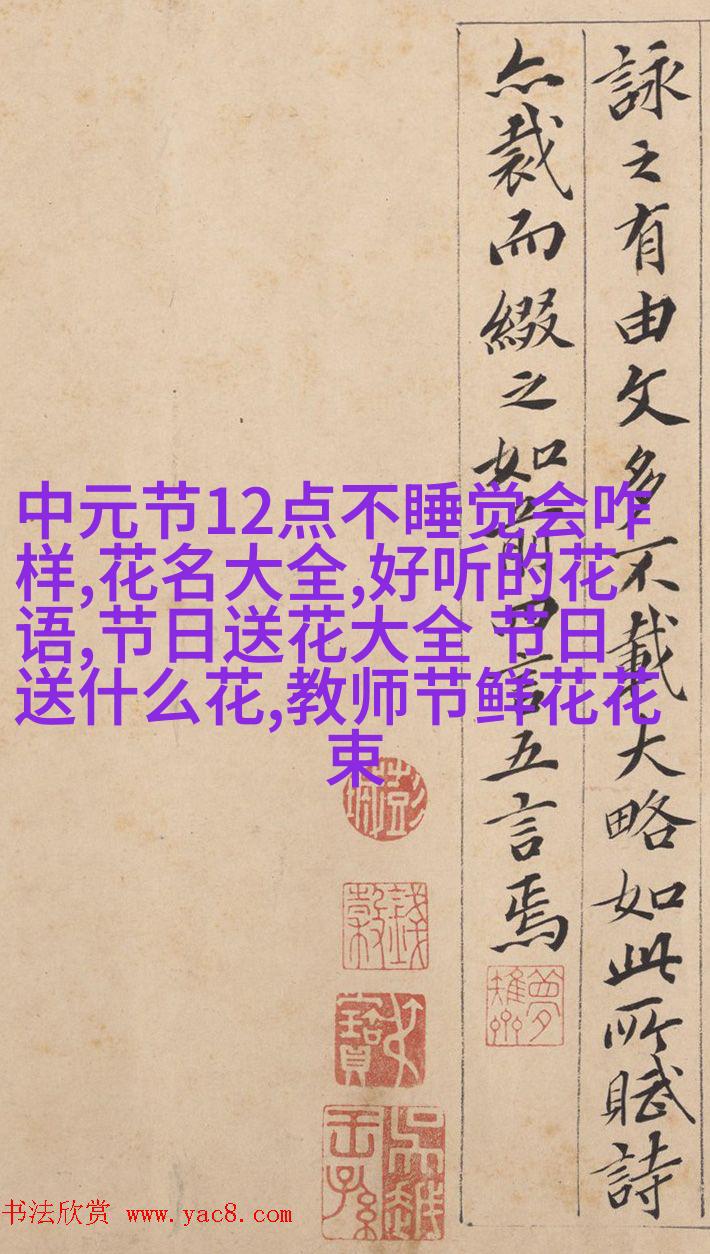 詠之有由文多不載大略如此所賦詩
亦裁而綴之如前四言五言焉
中元节12点不睡觉会咋
样,花名大全,好听的花
语,节日送花大全 节日
送什么花,教师节鲜花花
束
书法欣赏 www.yac8.com